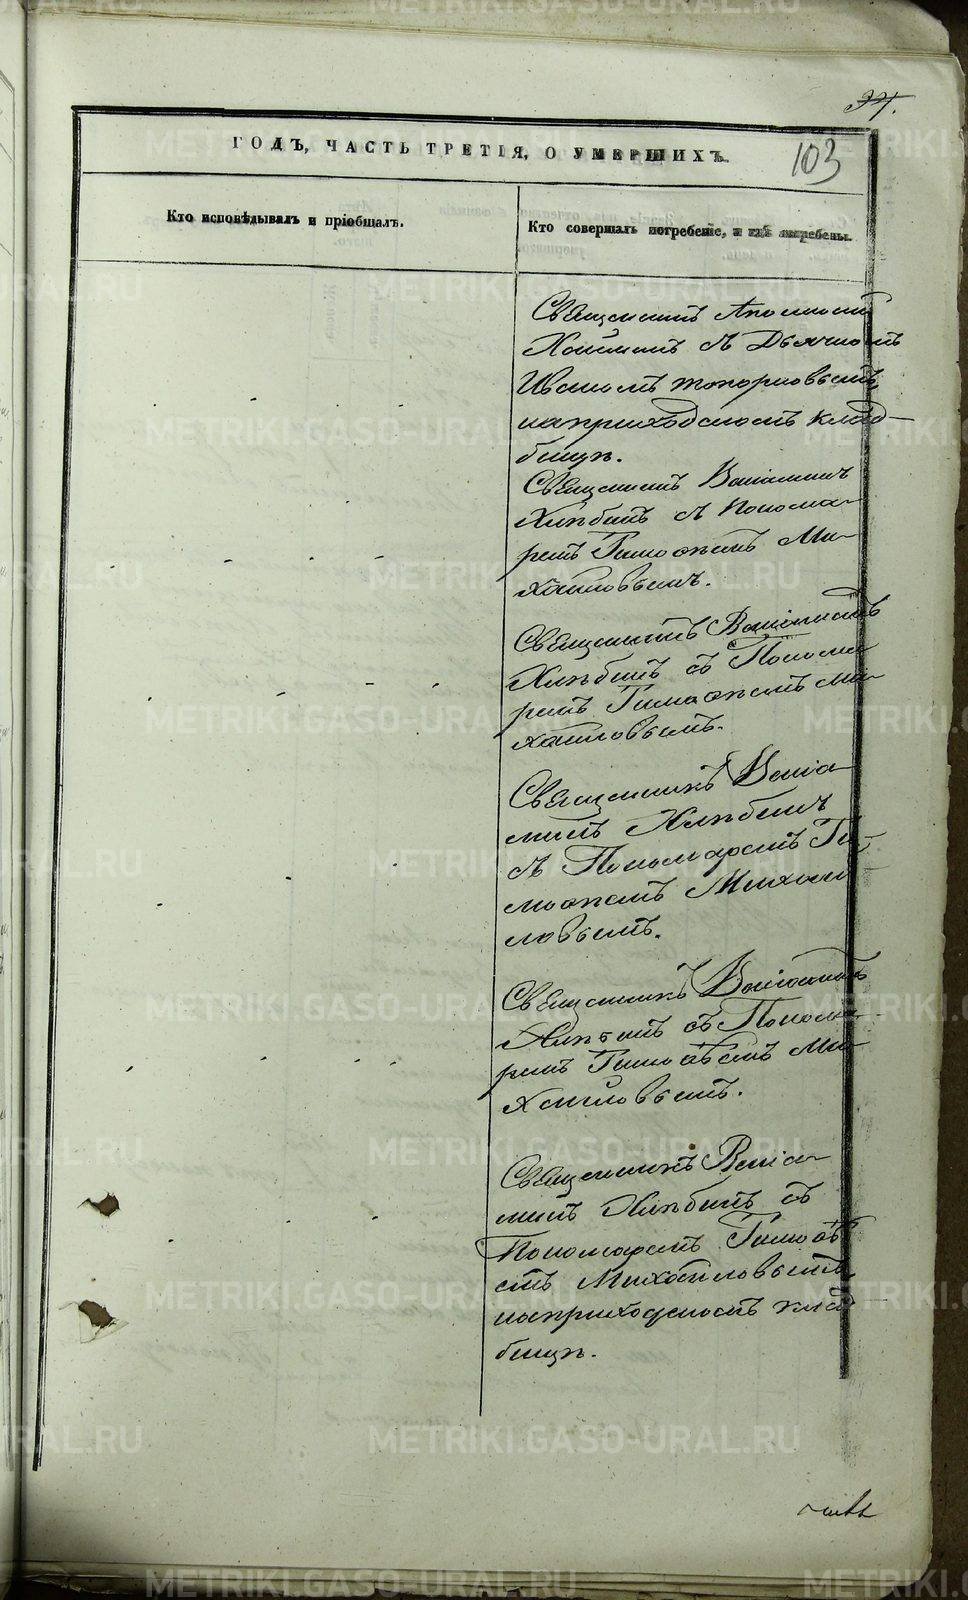 103
ГОДЪ, ЧАСТЬ ТРЕТІЯ, О УМЕРШИХЪ.
Кто исповѣдывалъ и пріобщалъ.
Кто совершалъ погребеніе, и гдѣ погребены.
Священникъ
съ Дьячкомъ
Иваномъ Топорковымъ
на приходскомъ клад-
бищѣ.
Священникъ Веніаминъ
Хлѣбинъ съ Понома-
ремъ Тимоѳеемъ Ми-
хайловымъ.
Священникъ Веніаминъ
Хлѣбинъ съ Понома
ремъ Тимоѳеемъ Ми-
хайловымъ.
Священникъ Веніа
минъ Хлѣбинъ
съ Пономаремъ Ти-
моѳеемъ Михаи
ловымъ.
Священникъ Веніаминъ
Хлѣбинъ съ Понома-
ремъ Тимоѳеемъ Ми-
хайловымъ.
Священникъ Веніа-
минъ Хлѣбинъ съ
Пономаремъ Тимоѳе
емъ Михайловымъ
на приходскомъ клад-
бищѣ.
METRIKI.GASO-URAL.RU